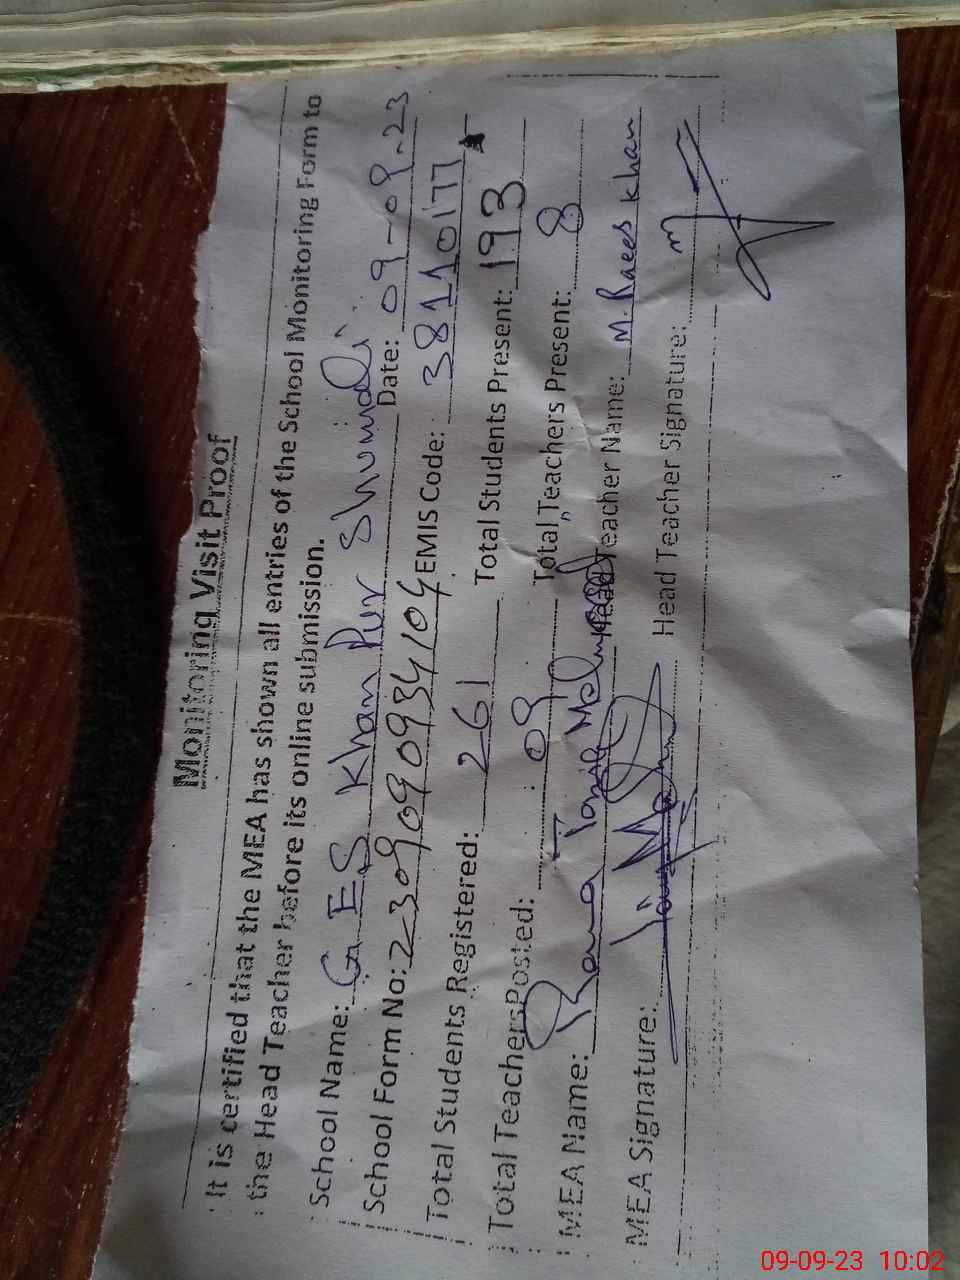 Monitoring Visit Proof
It is certified that the MEA has shown all entries of the School Monitoring Form to
the Head Teacher before its online submission.
School Name: G ES Khan Pur Shumali
School Form No: 2309090934104 Date: 09-09-23
EMIS Code: 38110177
Total Students Registered: 261 Total Students Present: 193
Total Teachers Posted: 09 Total Teachers Present: 8
MEA Name: Rana Tariq Mahmood Head Teacher Name: M. Raees Khan
MEA Signature: Head Teacher Signature:
09-09-23 10:02